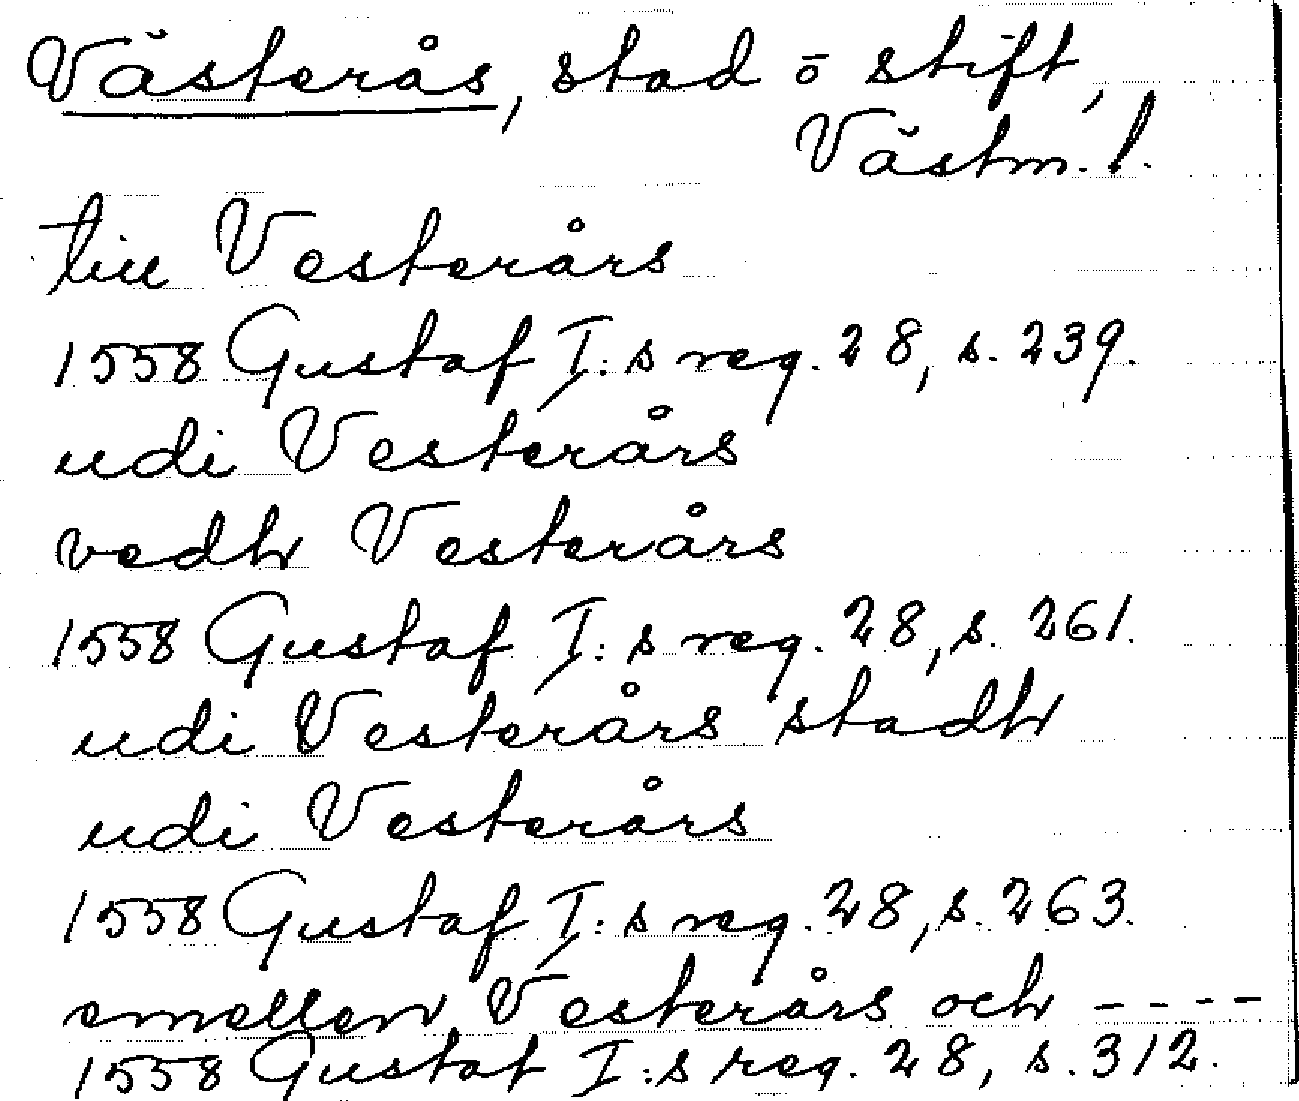 Västerås, stad o stift,
Västm. l.
till Vesterårs
1558 Gustaf I:s reg. 28, s. 239.
udi Vesterårs
vedh Vesterårs
1558 Gustaf I:s reg. 28, s. 261.
udi Vesterårs stadh
udi Vesterårs
1558 Gustaf I:s reg. 28, s. 263.
emellen Vesterårs och ----
1558 Gustaf I:s reg. 28, s. 312.